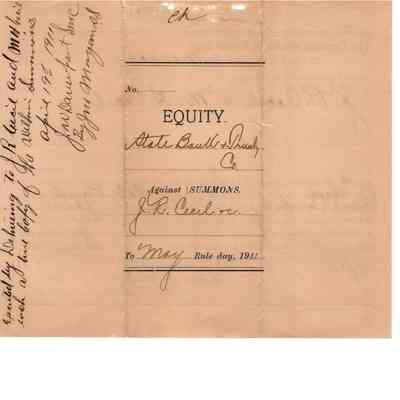 ch
No.
EQUITY.
State Bank & Trust
Co
Against } SUMMONS.
J. R. Cecil &c.
To May Rule day, 191
Executed by Delivering to J R Cecil and
each a true copy of the Within Summons
April 19th 191
J W Davenport
By